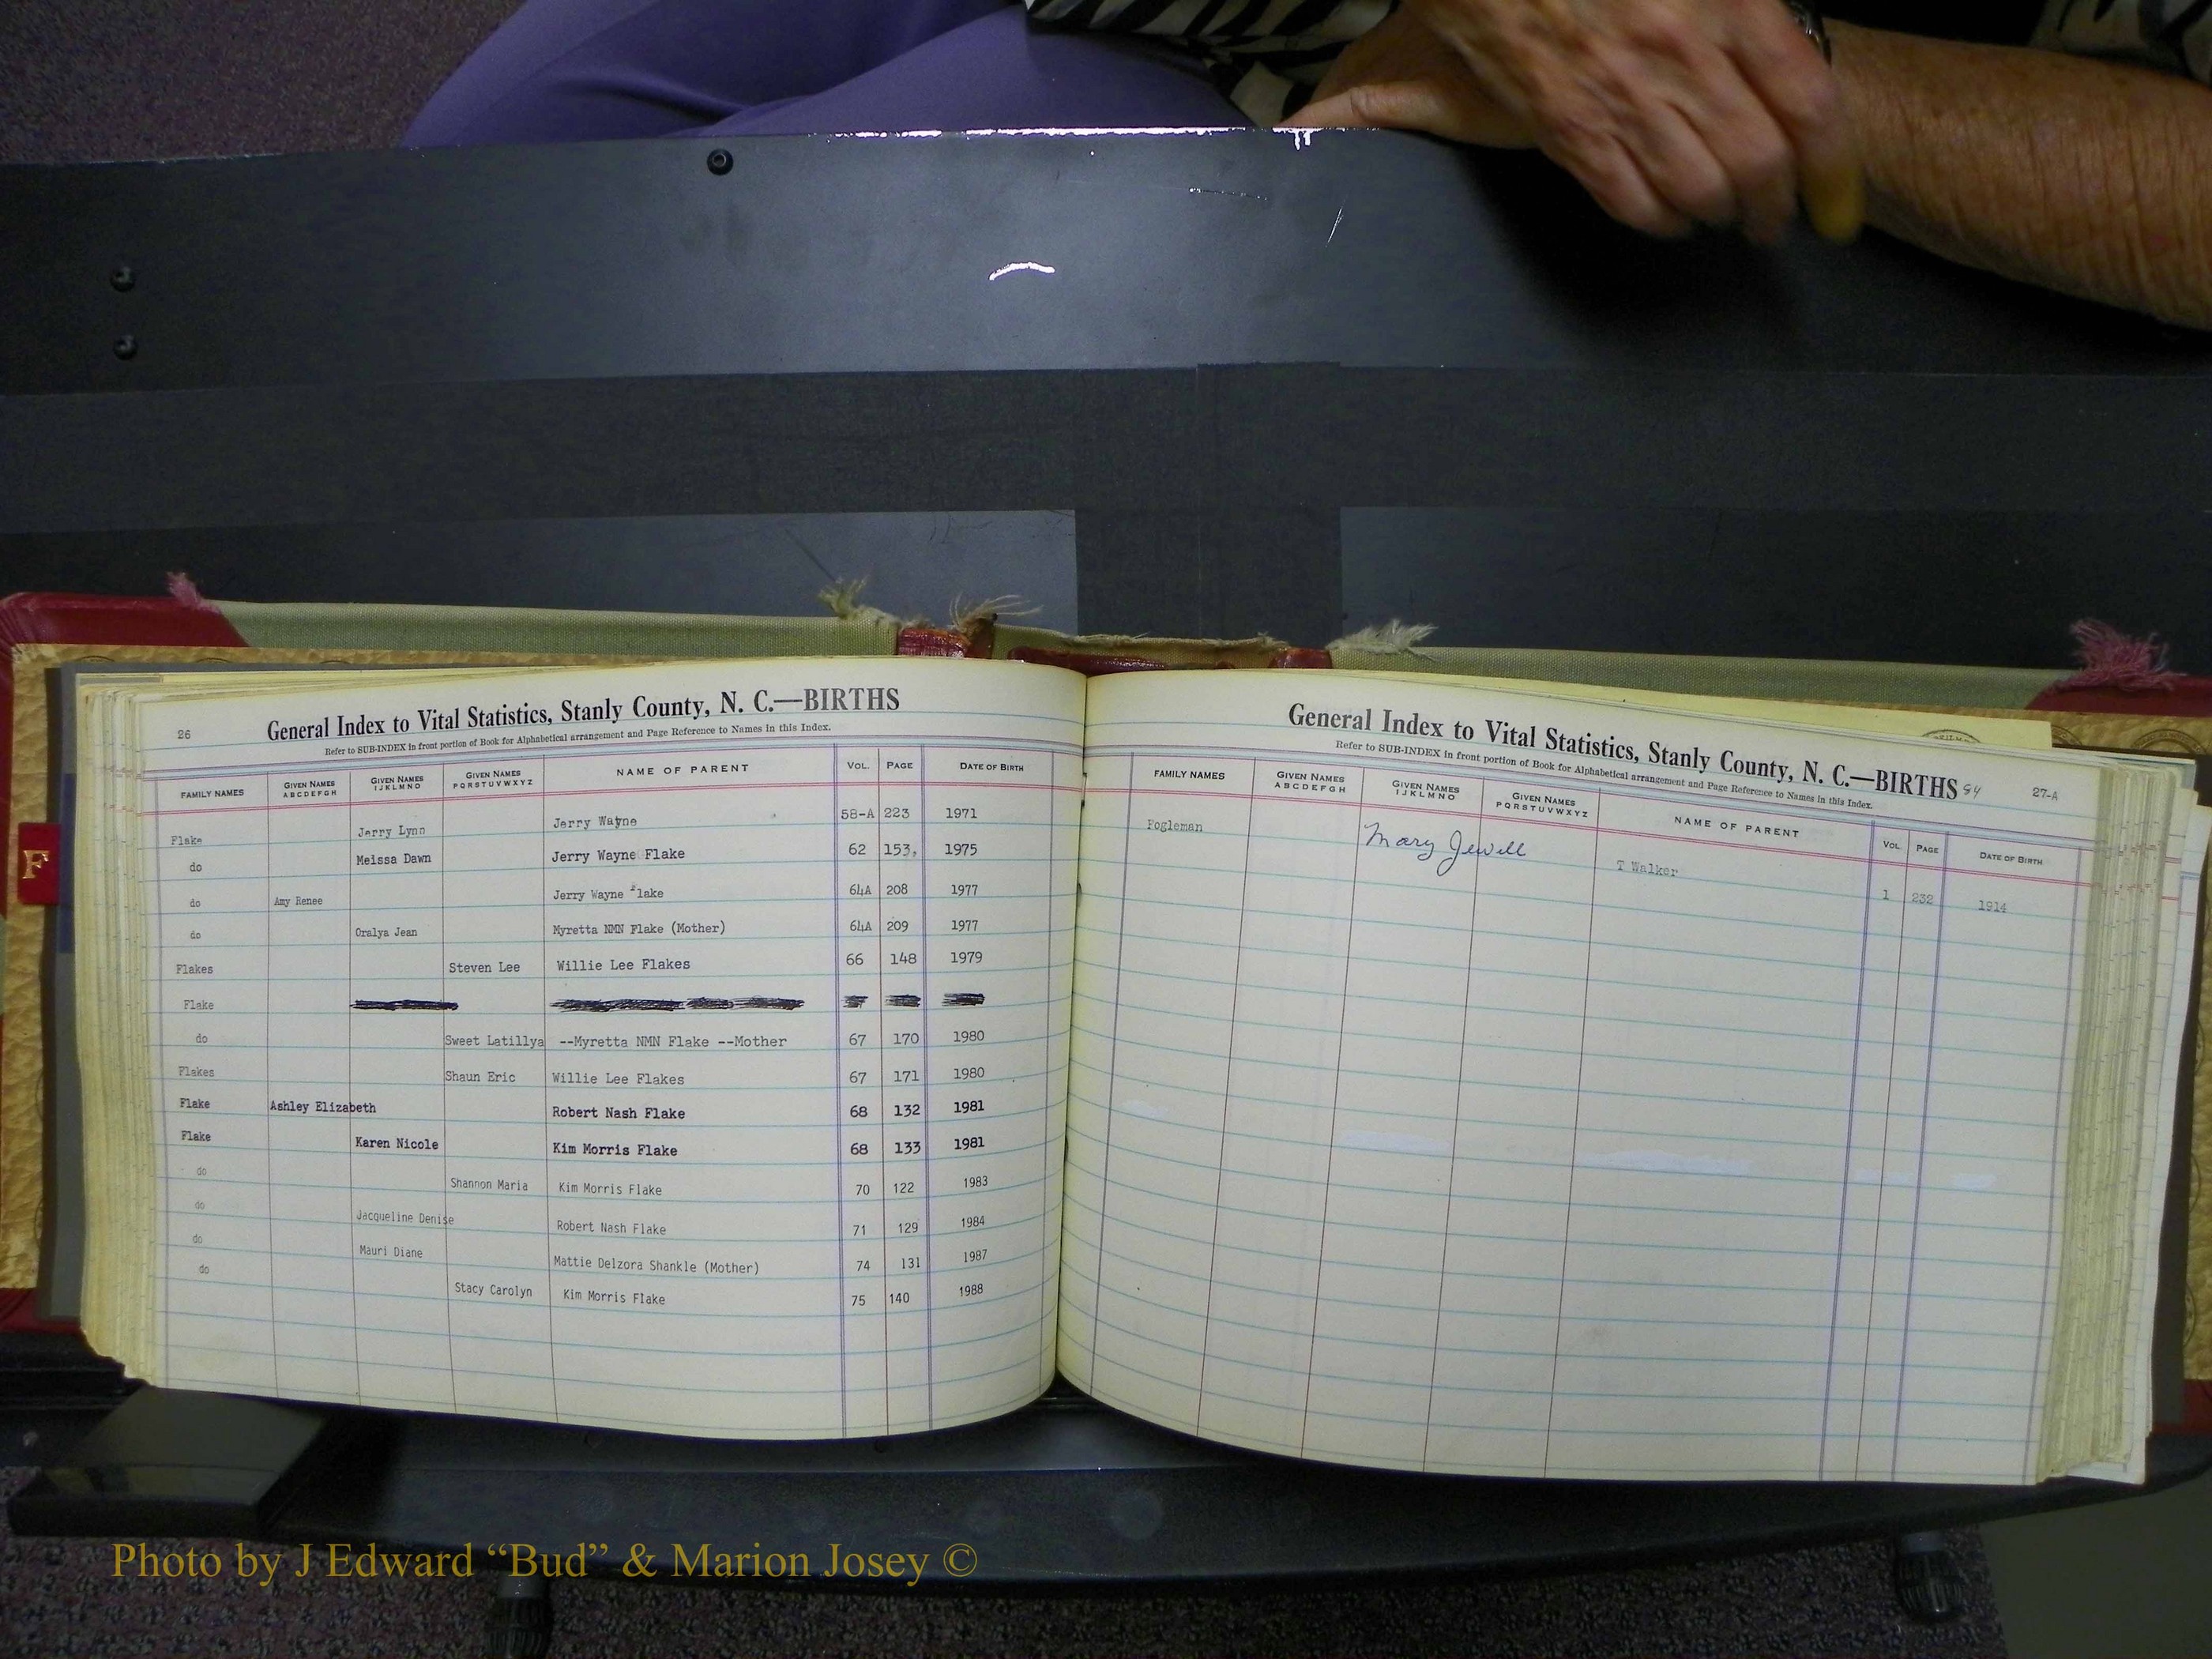 26
General Index to Vital Statistics, Stanly County, N. C.—BIRTHS
Refer to SUB-INDEX in front portion of Book for Alphabetical arrangement and Page Reference to Names in this Index.
FAMILY NAMES GIVEN NAMES ABCDEFGH GIVEN NAMES IJKLMNO GIVEN NAMES PQRSTUVWXYZ NAME OF PARENT VOL. PAGE DATE OF BIRTH
Flake Jerry Lynn Jerry Wayne 58-A 223 1971
do Meissa Dawn Jerry Wayne Flake 62 153, 1975
do Amy Renee Jerry Wayne Flake 64A 208 1977
do Oralya Jean Myretta NMN Flake (Mother) 64A 209 1977
Flakes Steven Lee Willie Lee Flakes 66 148 1979
Flake
do Sweet Latillya --Myretta NMN Flake --Mother 67 170 1980
Flakes Shaun Eric Willie Lee Flakes 67 171 1980
Flake Ashley Elizabeth Robert Nash Flake 68 132 1981
Flake Karen Nicole Kim Morris Flake 68 133 1981
do Shannon Maria Kim Morris Flake 70 122 1983
do Jacqueline Denise Robert Nash Flake 71 129 1984
do Mauri Diane Mattie Delzora Shankle (Mother) 74 131 1987
do Stacy Carolyn Kim Morris Flake 75 140 1988
F
General Index to Vital Statistics, Stanly County, N. C.—BIRTHS 84 27-A
Refer to SUB-INDEX in front portion of Book for Alphabetical arrangement and Page Reference to Names in this Index.
FAMILY NAMES GIVEN NAMES ABCDEFGH GIVEN NAMES IJKLMNO GIVEN NAMES PQRSTUVWXYZ NAME OF PARENT VOL. PAGE DATE OF BIRTH
Fogleman Mary Jewell T Walker 1 232 1914
Photo by J Edward “Bud” & Marion Josey ©